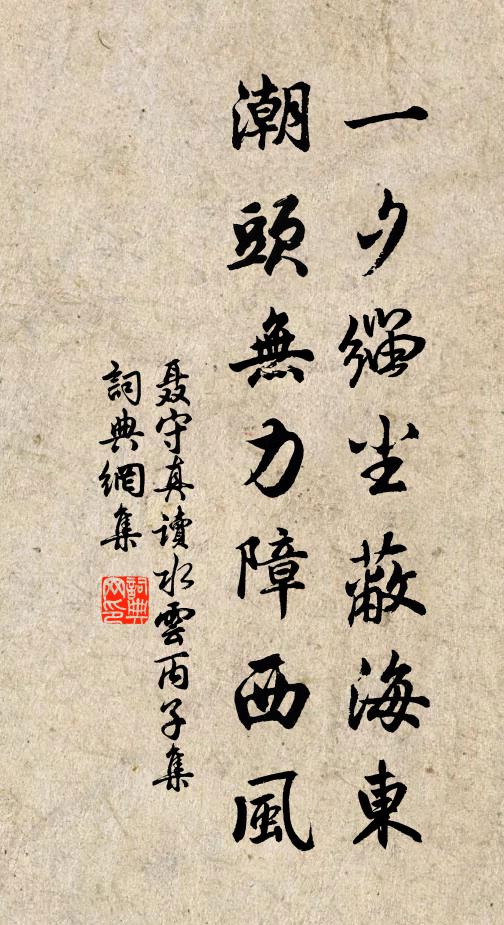 一夕緇尘蔽海東
潮頭無力障西風
聂守真讀水雲丙子集
詞典網集
詞典
网印